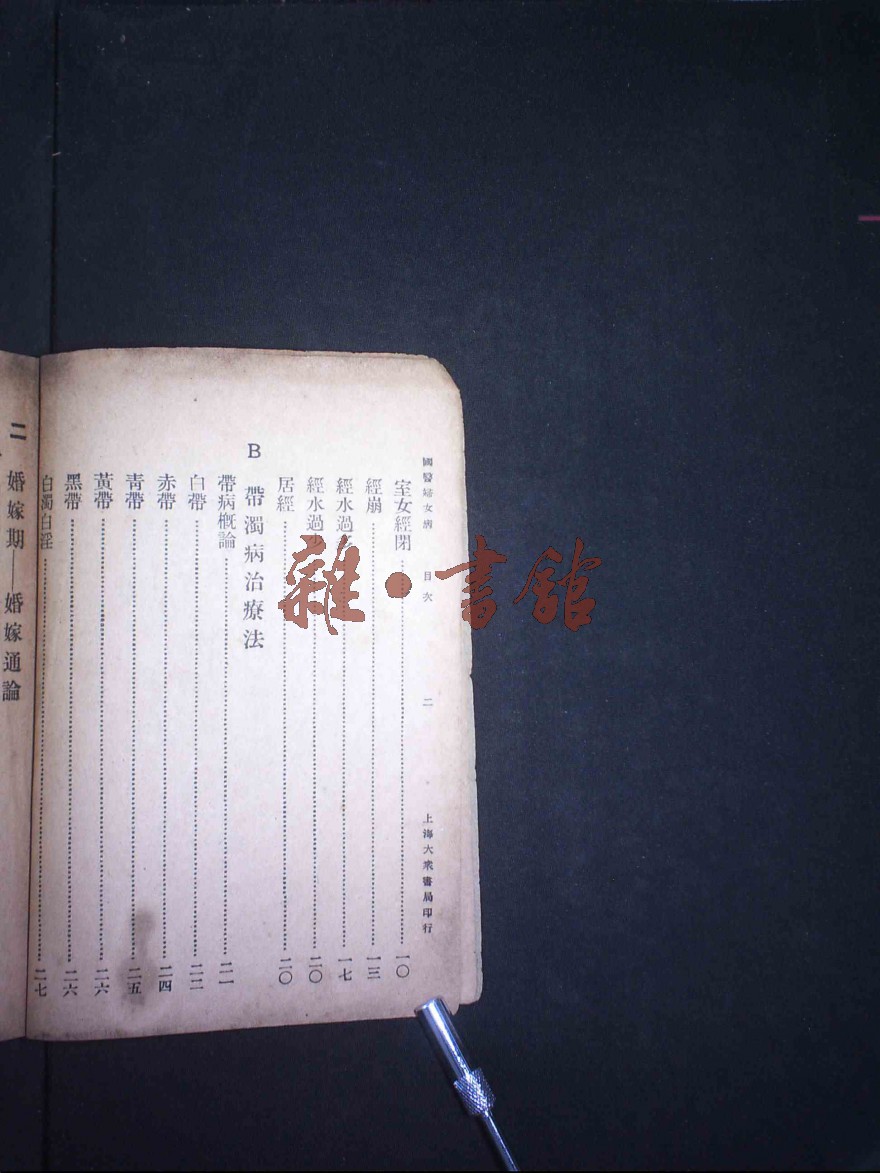 國醫婦女病 目次 二 上海大衆書局印行
室女經閉 一〇
經崩 一三
經水過 一七
經水過 二〇
居經 二〇
B 帶濁病治療法
帶病概論 二一
白帶 二二
赤帶 二四
青帶 二五
黃帶 二六
黑帶 二六
白濁白淫 二七
二 婚嫁期—婚嫁通論
雜·書館